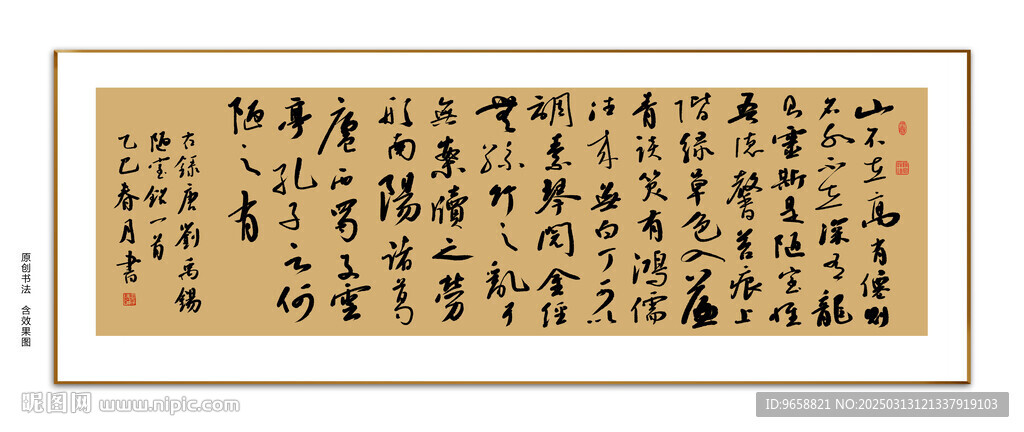 山不在高有僊則
名水不在深有龍
則靈斯是陋室惟
吾德馨苔痕上
階緑草色入簾
青談笑有鴻儒
往來無白丁可以
調素琴閱金經
無絲竹之亂耳
無案牘之勞
形南陽諸葛
廬西蜀子雲
亭孔子云何
陋之有
右録唐劉禹錫
陋室銘一首
乙巳春月書
原创书法 含效果图
昵图网 www.nipic.com
ID:9658821 NO:20250313121337919103